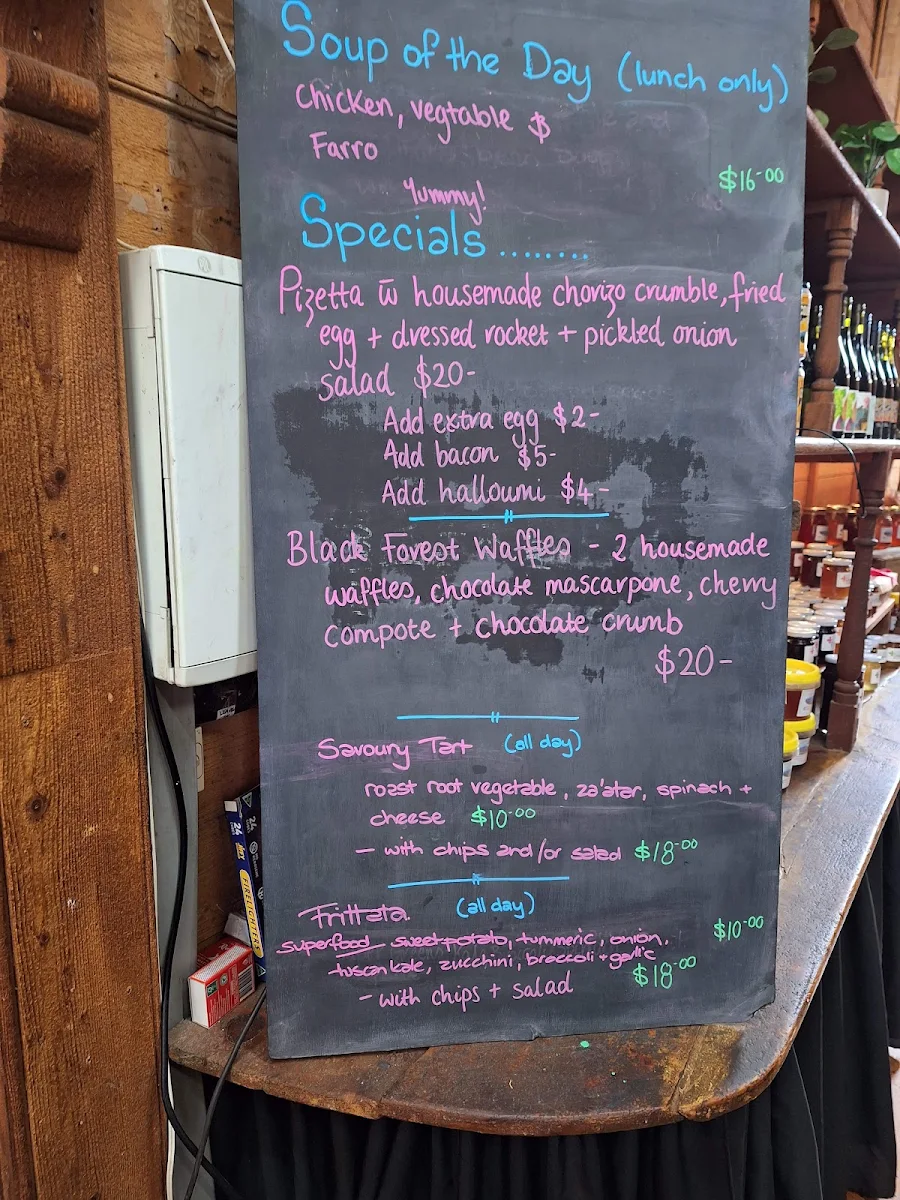 Soup of the Day (lunch only)
Chicken, vegtable &
Farro
$16-00
Yummy!
Specials ........
Pizetta w̄ housemade chorizo crumble, fried
egg + dressed rocket + pickled onion
salad $20-
Add extra egg $2-
Add bacon $5-
Add halloumi $4-
Black Forest Waffles - 2 housemade
waffles, chocolate mascarpone, cherry
compote + chocolate crumb
$20-
Savoury Tart (all day)
roast root vegetable, za'atar, spinach +
cheese $10-00
- with chips and/or salad $18-00
Frittata. (all day)
superfood sweet potato, tummeric, onion, $10-00
tuscan kale, zucchini, broccoli + garlic
- with chips + salad $18-00
24
FIRELIGHTERS